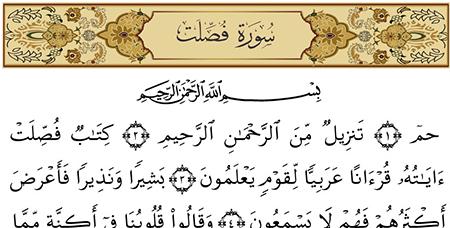 سُورَةُ فُصِّلَتْ
بِسْمِ اللَّهِ الرَّحْمَٰنِ الرَّحِيمِ
حمٓ ﴿١﴾ تَنزِيلٌ مِّنَ ٱلرَّحْمَٰنِ ٱلرَّحِيمِ ﴿٢﴾ كِتَٰبٌ فُصِّلَتْ
ءَايَٰتُهُۥ قُرْءَانًا عَرَبِيًّا لِّقَوْمٍ يَعْلَمُونَ ﴿٣﴾ بَشِيرًا وَنَذِيرًا فَأَعْرَضَ
أَكْثَرُهُمْ فَهُمْ لَا يَسْمَعُونَ ﴿٤﴾ وَقَالُوا۟ قُلُوبُنَا فِىٓ أَكِنَّةٍ مِّمَّا